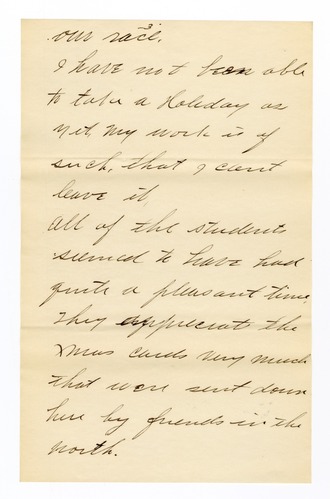 3
our race.
I have not been able
to take a Holiday as
yet, my work is of
such, that I cant
leave it,
all of the students
seemed to have had
quite a pleasant time.
They appreciate the
Xmas cards very much
that were sent down
here by friends in the
north.